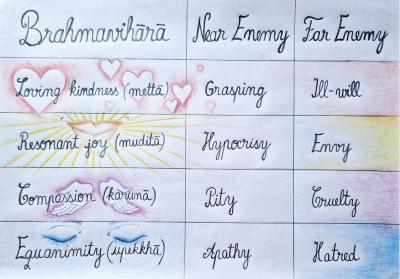 Brahmavihārā Near Enemy Far Enemy
Loving kindness (mettā) Grasping Ill-will
Resonant joy (muditā) Hypocrisy Envy
Compassion (karunā) Pity Cruelty
Equanimity (upekkhā) Apathy Hatred